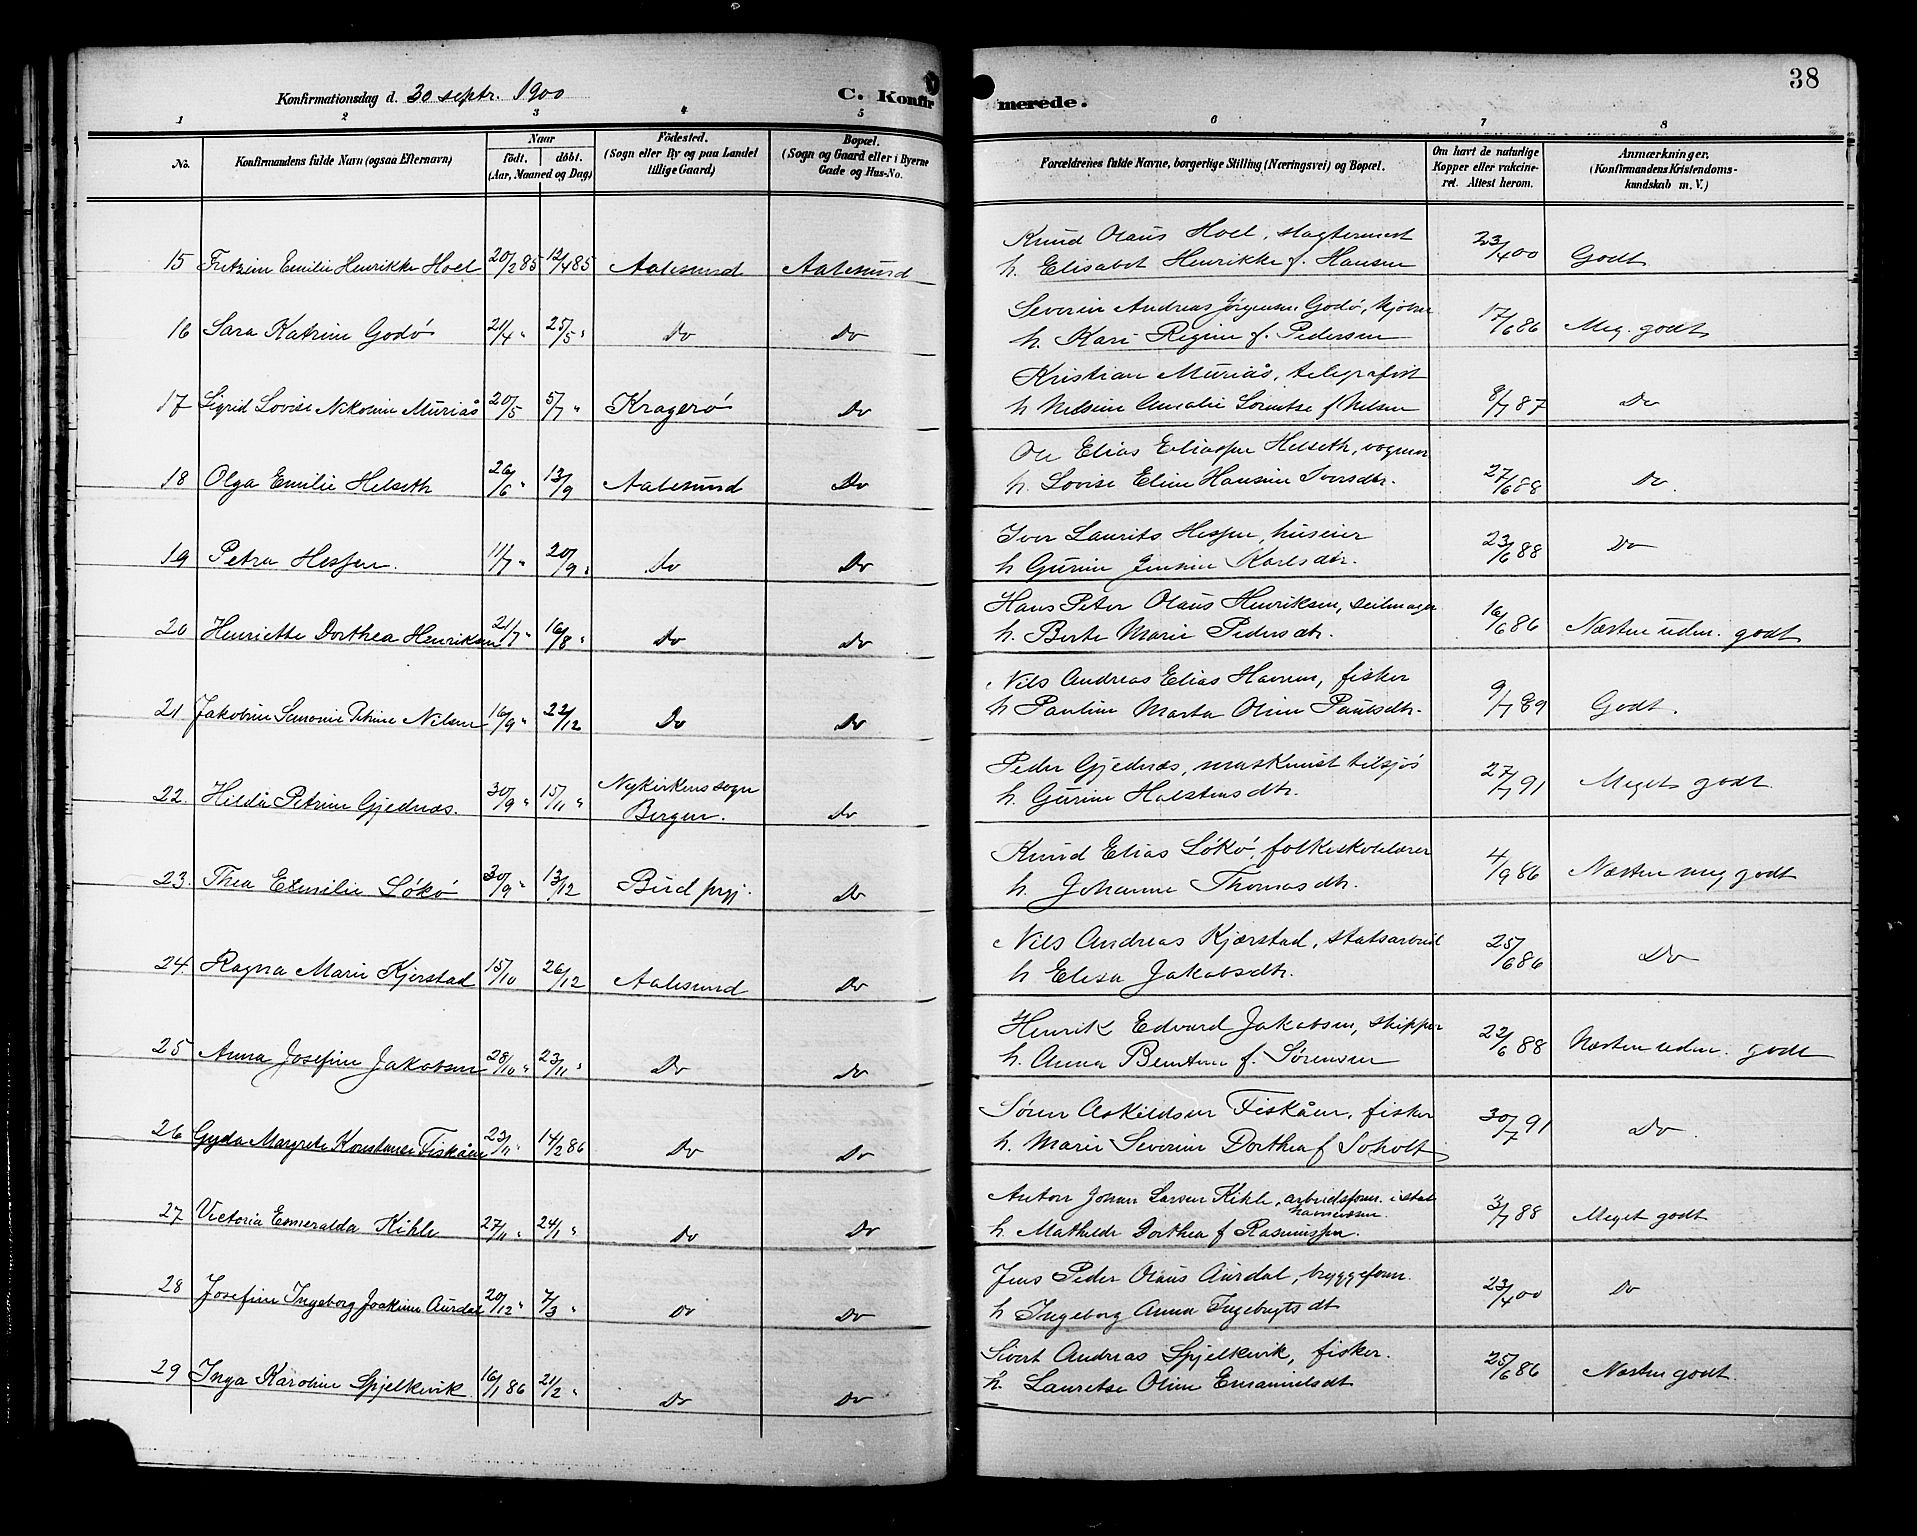 38
Konfirmationsdag d. 30 septr. 1900
C. Konfirmerede.
1 2 3 4 5 6 7 8
No.
Konfirmandens fulde Navn (ogsaa Efternavn)
Naar
födt. döbt.
(Aar, Maaned og Dag)
Födested.
(Sogn eller By og paa Landet
tillige Gaard)
Bopæl.
(Sogn og Gaard eller i Byerne
Gade og Hus-No.
Forældrenes fulde Navne, borgerlige Stilling (Næringsvei) og Bopæl.
Om havt de naturlige
Kopper eller vakcine-
ret. Attest herom.
Anmærkninger.
(Konfirmandens Kristendoms-
kundskab m. V.)
Knud Olaus Hoel, slagtermest
15 Fritzine Emilie Henrikke Hoel 20/2 85 12/4 85 Aalesund Aalesund h. Elisabet Henrikke f. Hansen 23/4 00 Godt
Severin Andreas Jörgensen Godö,
16 Sara Katrine Godö 21/4 " 25/5 " Do Do h. Kari Regine f. Pedersen 17/6 86 Meg. godt
Kristian Muriås, telegrafist
17 Sigrid Lovise Nikoline Muriås 20/5 5/7 " Kragerö Do h Nelsine Amalie Lorentse f Nelsen 8/7 87 Do
Ole Elias Eliassen Helseth, vognm
18 Olga Emilie Helseth 26/6 " 13/9 Aalesund Do h. Lovise Eline Hansine Iversdtr. 27/6 88 Do
Iver Laurits Hessen, huseier
19 Petra Hessen. 11/7 " 20/9 " Do Do h Gurine Jensine Karlsdtr. 23/6 88 Do
Hans Peter Olaus Henriksen, seilmager
20 Henriette Dorthea Henriksen 21/7 " 16/8 " Do Do h. Berte Marie Pedersdtr. 16/6 86 Næsten udm. godt
Nils Andreas Elias Havnen, fisker
21 Jakobine Petrine Nilsen 16/9 " 22/12 Do Do h Pauline Marta Oline Paulsdtr. 9/7 89 Godt.
Peder Gjednæs, maskinist tilsjös
22. Hilda Petrine Gjednæs. 30/9 " 15/11 " Nykirkens sogn Bergen. Do h. Gurine Halstensdtr. 27/7 91 Meget godt
Knud Elias Lökö, folkeskolelærer
23. Thea Emilie Lökö 30/9 " 13/12 Bud prgj. Do h. Johanne Thomasdtr. 4/9 86 Næsten meg godt
Nils Andreas Kjærstad, statsarbeid
24 Ragna Marie Kjerstad 15/10 26/12 Aalesund Do h Elisa Jakobsdtr. 25/6 86 Do
Henrik Edvard Jakobsen, skipper
25 Anna Josefine Jakobsen 28/10 " 23/11 " Do Do h. Anna Bentine f. Sörensen 22/6 88 Næsten udm. godt
Sören Askildsen Fiskåen, fisker
26 Gyda Margrete Konstanse Fiskåen 23/11 " 14/2 86 Do Do h. Marie Severine Dorthea f Soholt 30/7 91 Do
Anton Johan Larsen Kihle, arbeidsform. i stat
havnevæsen.
27 Victoria Esmeralda Kihle 27/11 " 24/1 " Do Do h Mathilde Dorthea f Rasmussen. 3/7 88 Meget godt
Jens Peder Olaus Aurdal, bryggeform.
28 Josefine Ingeborg Joakime Aurdal 20/12 " 7/3 " Do Do h Ingeborg Anna Ingebrigtsdt 23/4 00 Do
Sivert Andreas Spjelkevik, fisker.
29 Inga Karoline Spjelkevik 16/1 86 21/2 " Do Do h. Lauretse Oline Emanuelsdt 25/6 86 Næsten godt.